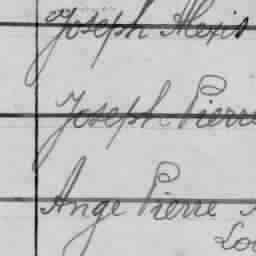 Joseph Alexis
Joseph Pierre
Ange Pierre